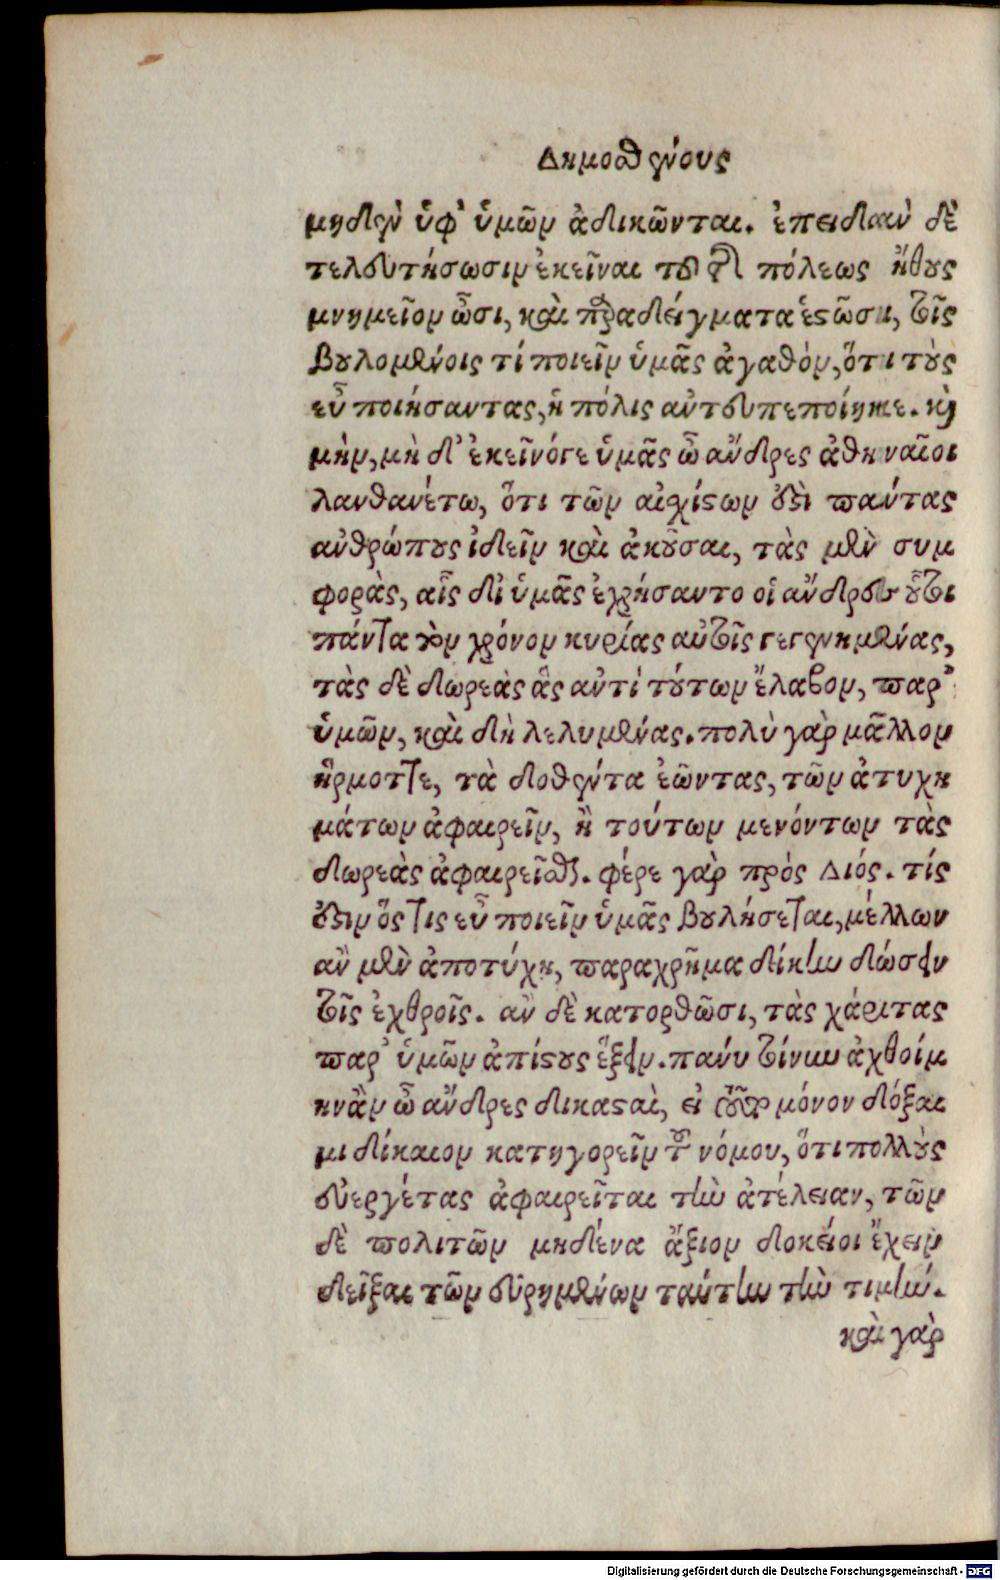 Δημοσθένους
μηδὲν ὑφ' ὑμῶν ἀδικῶνται. ἐπειδὰν δὲ
τελευτήσωσιν ἐκεῖναι τοῦ τῆς πόλεως ἤθους
μνημεῖον ὦσι, καὶ παραδείγματα ἑστῶσι, τοῖς
βουλομένοις τί ποιεῖν ὑμᾶς ἀγαθὸν, ὅτι τοὺς
εὖ ποιήσαντας, ἡ πόλις ἀντευπεποίηκε. καὶ
μὴν, μὴ δ' ἐκεῖνόγε ὑμᾶς ὦ ἄνδρες ἀθηναῖοι
λανθανέτω, ὅτι τῶν αἰσχίστων ἐστὶ πάντας
ἀνθρώπους ἰδεῖν καὶ ἀκοῦσαι, τὰς μὲν συμ
φορὰς, αἷς δι ὑμᾶς ἐχρήσαντο οἱ ἄνδρες οὗτοι
πάντα τὸν χρόνον κυρίας αὐτοῖς γεγενημένας,
τὰς δὲ δωρεὰς ἃς ἀντὶ τούτων ἔλαβον, παρ'
ὑμῶν, καὶ δὴ λελυμένας. πολὺ γὰρ μᾶλλον
ἥρμοττε, τὰ δοθέντα ἐῶντας, τῶν ἀτυχη
μάτων ἀφαιρεῖν, ἢ τούτων μενόντων τὰς
δωρεὰς ἀφαιρεῖσθαι. φέρε γὰρ πρὸς Διός. τίς
ἐστιν ὅστις εὖ ποιεῖν ὑμᾶς βουλήσεται, μέλλων
ἂν μὲν ἀποτύχῃ, παραχρῆμα δίκην δώσειν
τοῖς ἐχθροῖς. ἂν δὲ κατορθῶσι, τὰς χάριτας
παρ' ὑμῶν ἀπίστους ἕξειν. πάνυ τοίνυν ἀχθοίμ
ην ἂν ὦ ἄνδρες δικασταὶ, εἰ τοῦτο μόνον δόξαι
μι δίκαιον κατηγορεῖν τοῦ νόμου, ὅτι πολλοὺς
εὐεργέτας ἀφαιρεῖται τὴν ἀτέλειαν, τῶν
δὲ πολιτῶν μηδένα ἄξιον δοκείοι ἔχειν
δεῖξαι τῶν εὑρημένων ταύτην τὴν τιμήν.
καὶ γὰρ
Digitalisierung gefördert durch die Deutsche Forschungsgemeinschaft - DFG